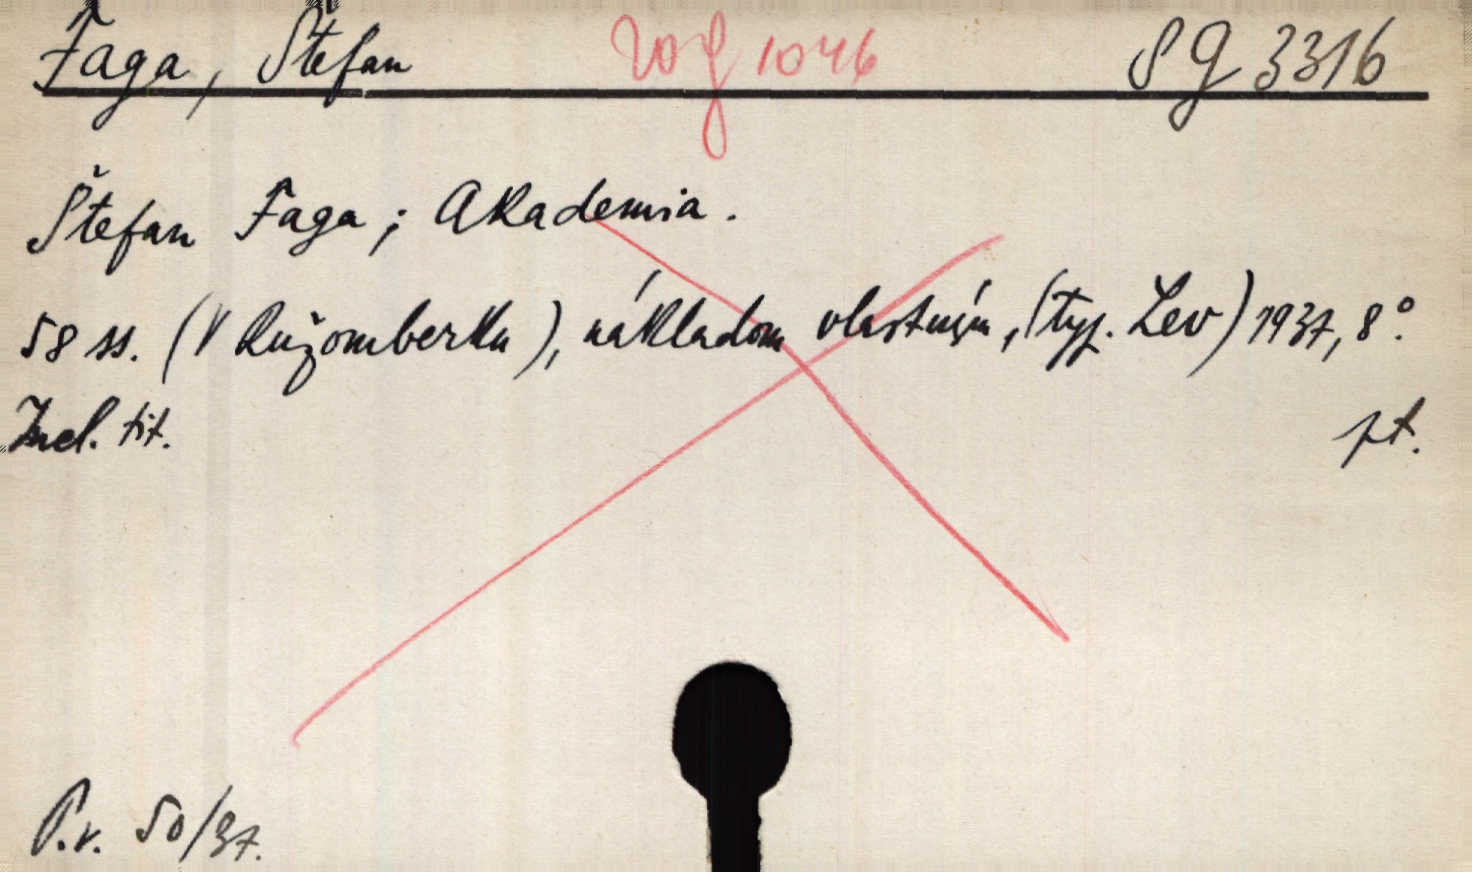 Faga, Štefan 1046 SG 3316
Štefan Faga; Akademia.
58 ss. (V Ružomberku), nákladom vlastným, (typ. Lev) 1937, 8°.
Incl. tit. pt.
P.v. 50/37.